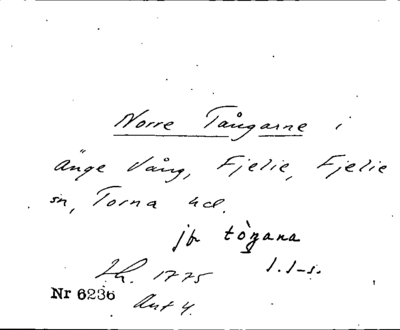 Norre Tångarne i
änge Vång, Fjelie, Fjelie
sn, Torna hd.
jfr tògana
Lh. 1775 l.l-s.
Nr 6236 Akt 4.